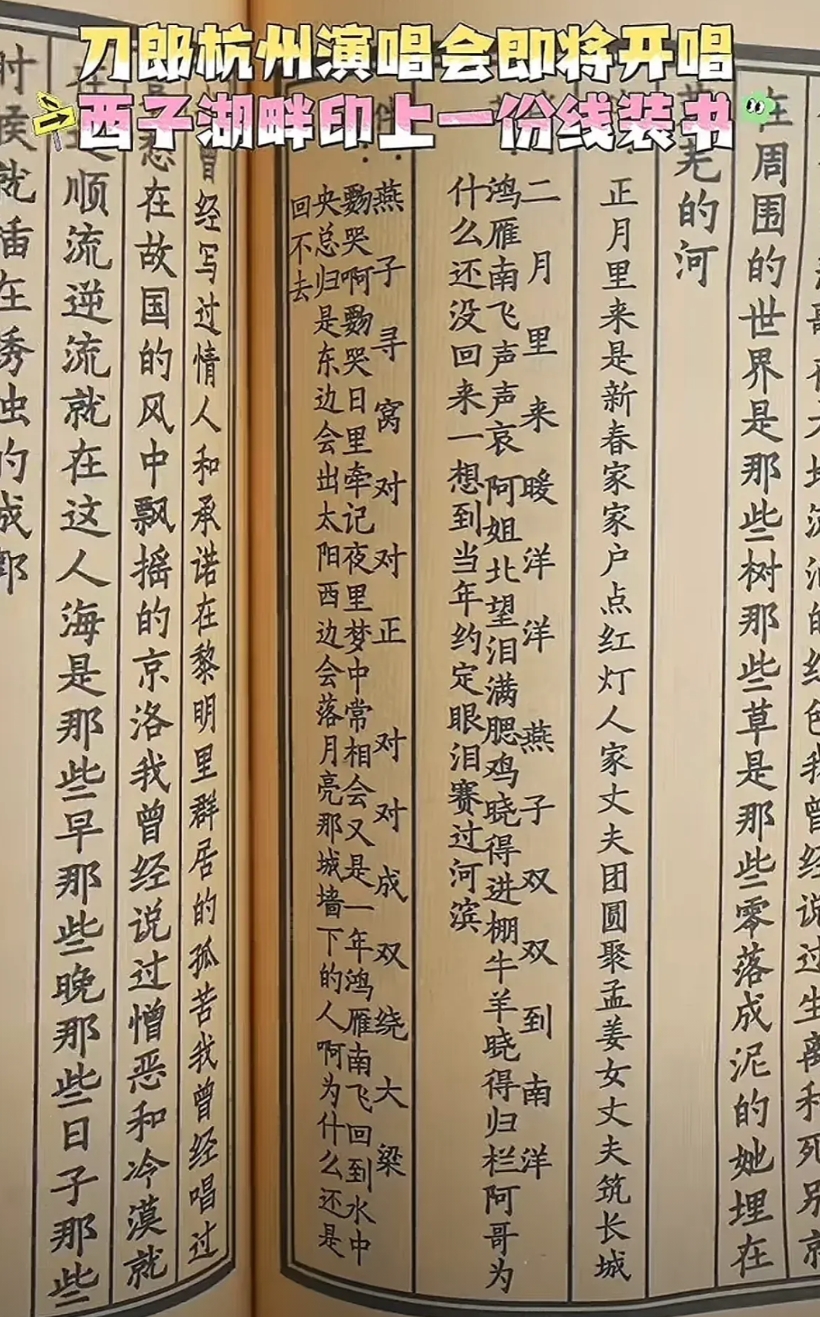 刀郎杭州演唱会即将开唱
西子湖畔印上一份线装书
我曾经说过生离和死别就
在周围的世界是那些树那些草是那些零落成泥的她埋在
老的河
正月里来是新春家家户点红灯人家丈夫团圆聚孟姜女丈夫筑长城
二月里来暖洋洋燕子双双到南洋
鸿雁南飞声声哀阿姐北望泪满腮鸡晓得进棚牛羊晓得归栏阿哥为
什么还没回来一想到当年约定眼泪赛过河滨
燕子寻窝对对正对对成双绕大梁
覅哭啊覅哭日里牵记夜里梦中常相会又是一年鸿雁南飞回到水中
央总归是东边会出太阳西边会落月亮那城墙下的人啊为什么还是
回不去
曾经写过情人和承诺在黎明里群居的孤苦我曾经唱过
愁在故国的风中飘摇的京洛我曾经说过憎恶和冷漠就
在这顺流逆流就在这人海是那些早那些晚那些日子那些
时候就插在诱虫的